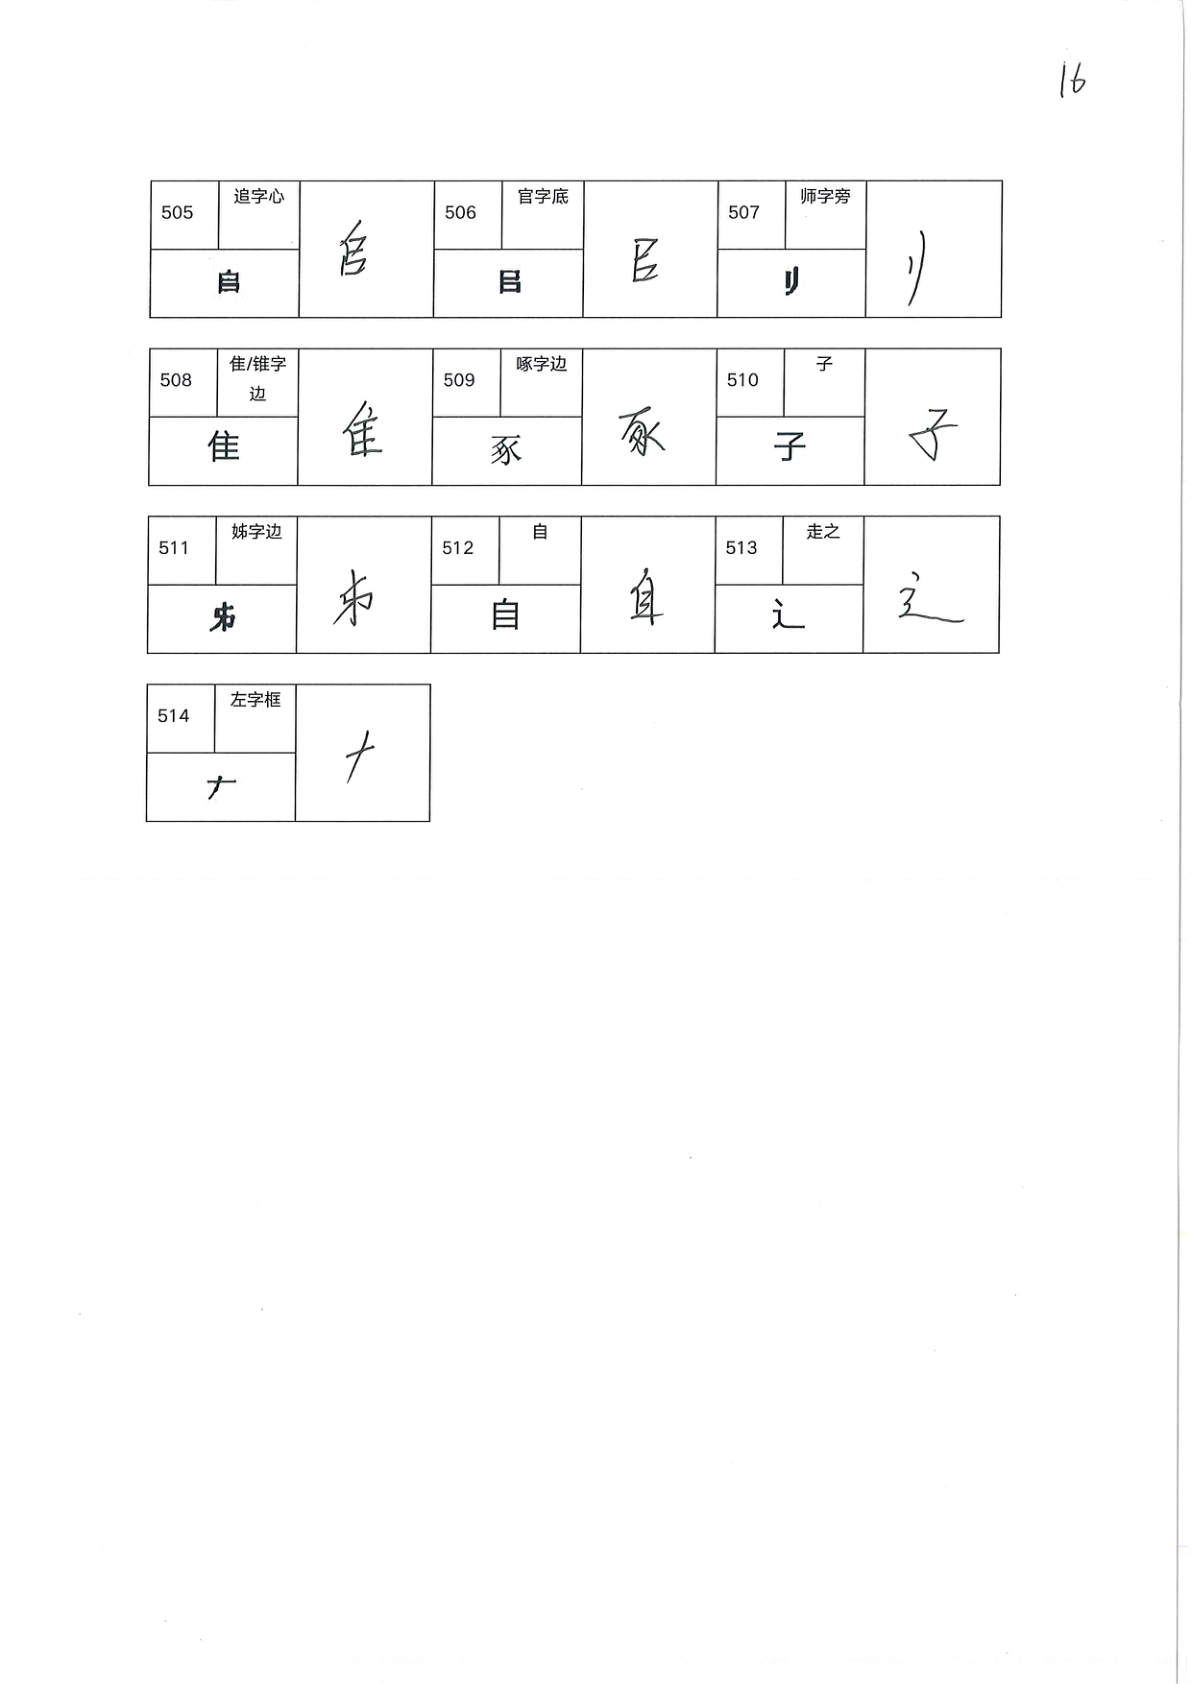 16
505 追字心 506 官字底 507 师字旁
𠂤 𠂤 㠯 㠯 刂 刂
508 隹/锥字边 509 啄字边 510 子
隹 隹 豖 豖 子 子
511 姊字边 512 自 513 走之
𠂔 𠂔 自 自 辶 辶
514 左字框
𠂇 𠂇